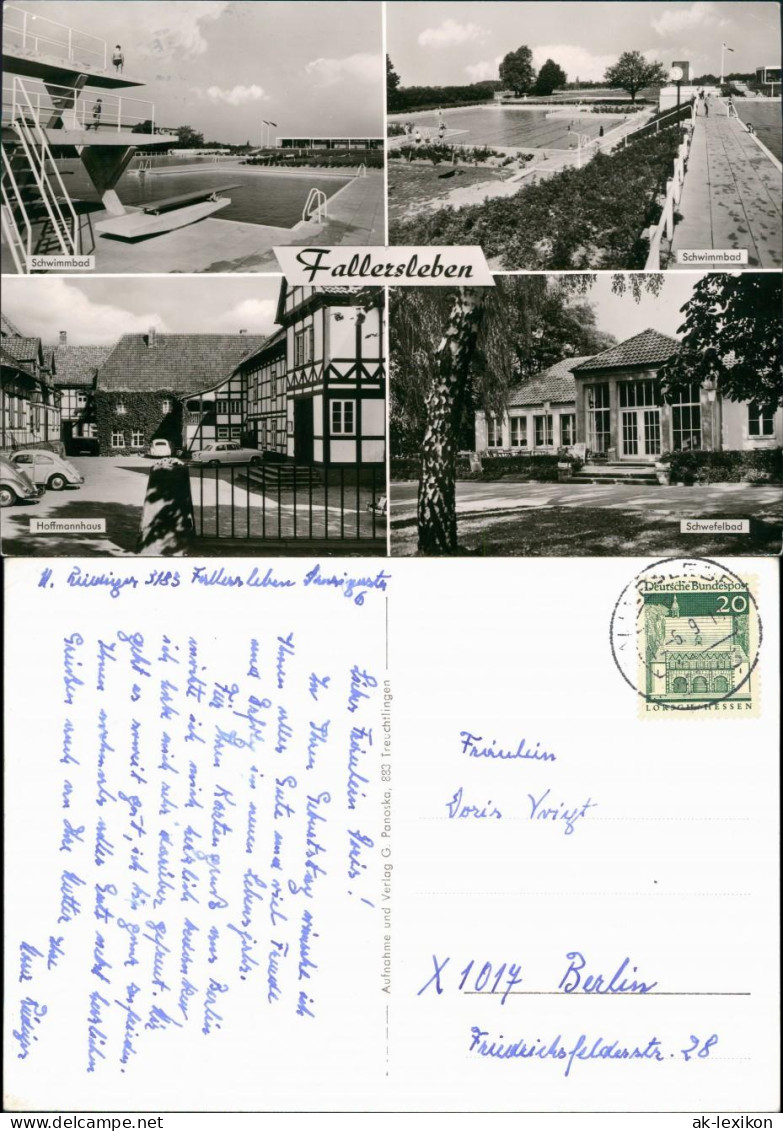 Schwimmbad
Schwimmbad
Fallersleben
Hoffmannhaus
Schwefelbad
Rüdiger 3183 Fallersleben
6
Deutsche Bundespost
20
LORSCH · HESSEN
Liebes Fräulein Doris!
Zu Ihrem Geburtstag wünsche ich
Ihnen alles Gute und viel Freude
und Erfolg im neuen Lebensjahr.
Für Ihren Kartengruß aus Berlin
möchte ich mich herzlich bedanken,
ich habe mich sehr darüber gefreut. Mir
geht es soweit gut, ich bin ganz zufrieden.
Ihnen nochmals alles Gute nebst herzlichen
Grüßen auch an Ihre Mutter
Ihre
Rüdiger
Aufnahme und Verlag G. Panoska, 883 Treuchtlingen
Fräulein
Doris Voigt
X 1017 Berlin
Friedrichsfelderstr. 28
ak-lexikon